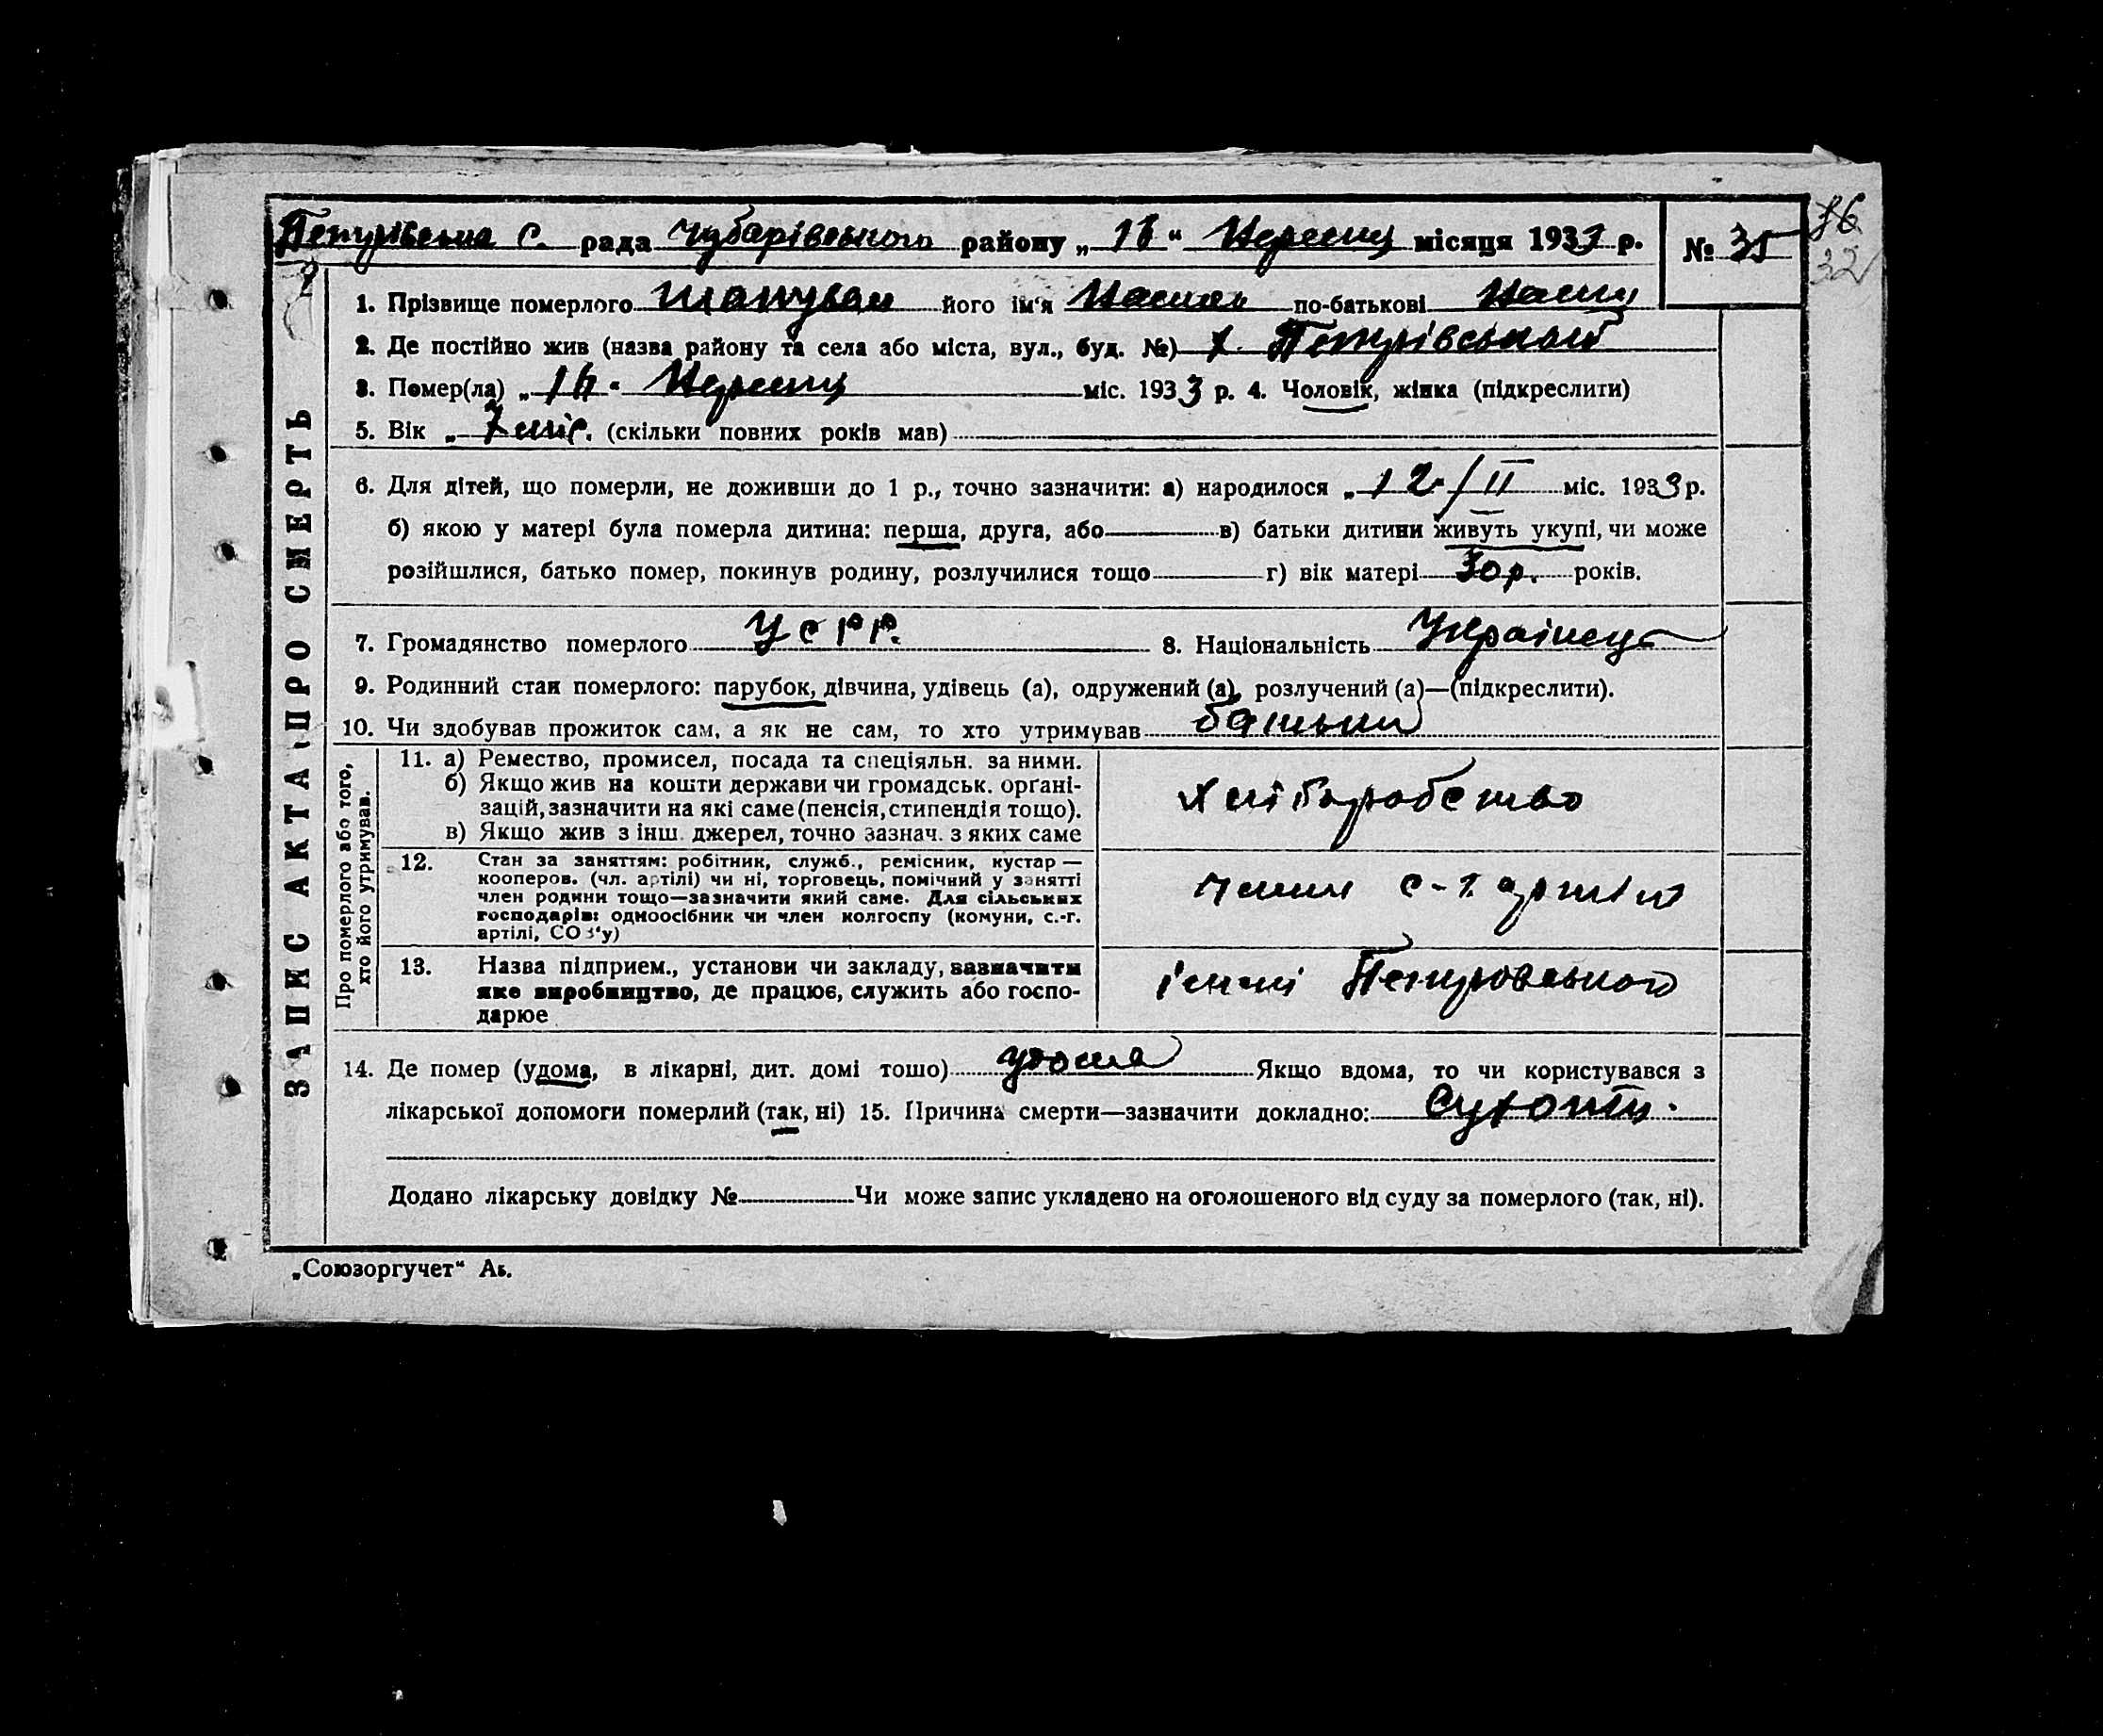 Петрівська с. рада Чубарівського району „ 16 “ Вересня місяця 1933 р. № 35
32
ЗАПИС АКТА ПРО СМЕРТЬ
1. Прізвище померлого його ім‘я по-батькові
2. Де постійно жив (назва району та села або міста, вул., буд. №) х. Петрівський
3. Помер(ла) „ 16 “ Вересня міс. 1933 р. 4. Чоловік, жінка (підкреслити)
5. Вік „ 7 міс. (скільки повних років мав)
6. Для дітей, що померли, не доживши до 1 р., точно зазначити: а) народилося „ 12 / II міс. 1933 р.
б) якою у матері була померла дитина: перша, друга, або в) батьки дитини живуть укупі, чи може
розійшлися, батько помер, покинув родину, розлучилися тощо г) вік матері 30 р. років.
7. Громадянство померлого УСРР. 8. Національність Українець
9. Родинний стан померлого: парубок, дівчина, удівець (а), одружений (а), розлучений (а)—(підкреслити).
10. Чи здобував прожиток сам, а як не сам, то хто утримував батьки
Про померлого або того,
хто його утримував.
11. а) Ремество, промисел, посада та спеціяльн. за ними.
б) Якщо жив на кошти держави чи громадськ. орґані-
зацій, зазначити на які саме (пенсія, стипендія тощо).
в) Якщо жив з інш. джерел, точно зазнач. з яких саме
Хліборобство
12. Стан за заняттям: робітник, служб., ремісник, кустар —
кооперов. (чл. артілі) чи ні, торговець, помічний у занятті
член родини тощо—зазначити який саме. Для сільських
господарів: одноосібник чи член колгоспу (комуни, с.-г.
артілі, СОЗ‘у)
член с-г артілі
13. Назва підприєм., установи чи закладу, зазначити
яке виробництво, де працює, служить або госпо-
дарює
імені Петровського
14. Де помер (удома, в лікарні, дит. домі тощо) удома Якщо вдома, то чи користувався з
лікарської допомоги померлий (так, ні) 15. Причина смерти—зазначити докладно: Сухоти.
Додано лікарську довідку № Чи може запис укладено на оголошеного від суду за померлого (так, ні).
„Союзоргучет“ Аь.